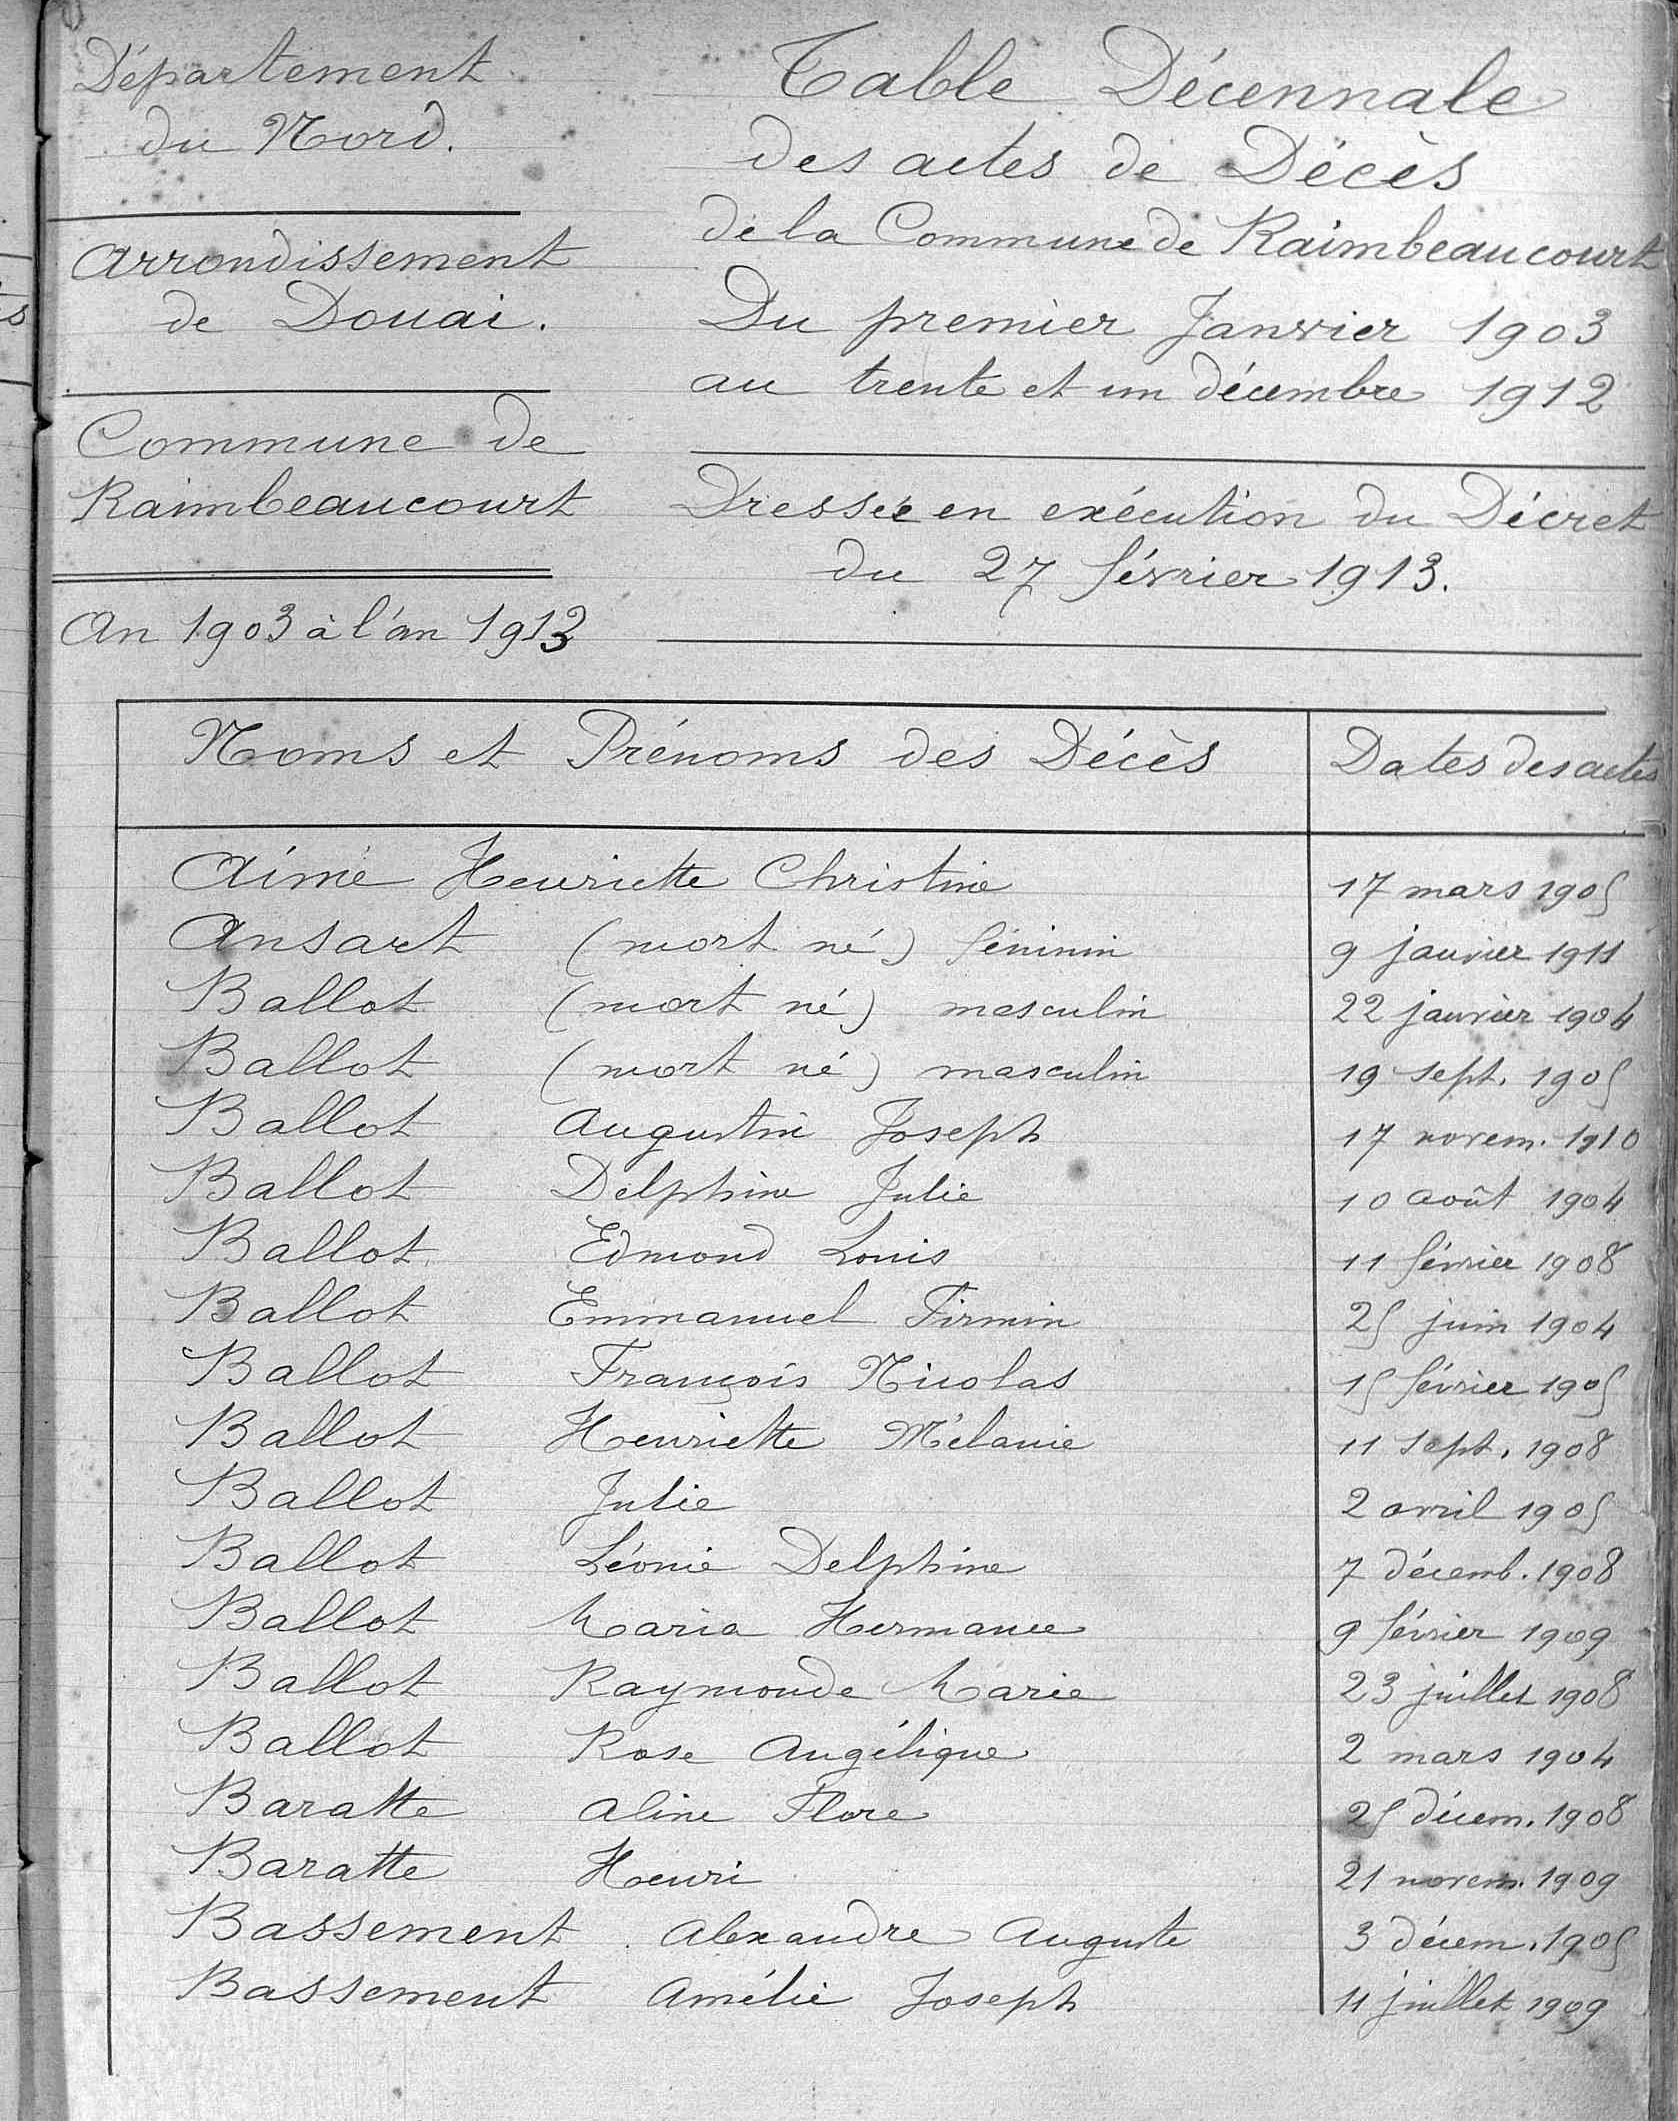 Département
du Nord.
Arrondissement
de Douai.
Commune de
Raimbeaucourt
An 1903 à l'an 1912
Table Décennale
des actes de Décès
de la Commune de Raimbeaucourt
Du premier Janvier 1903
au trente et un décembre 1912
Dressée en exécution du Décret
du 27 février 1913.
Noms et Prénoms des Décès Dates des actes
Aimé Henriette Christine 17 mars 1905
Ansart (mort né) féminin 9 janvier 1911
Ballot (mort né) masculin 22 janvier 1904
Ballot (mort né) masculin 19 sept. 1905
Ballot Augustin Joseph 17 novem. 1910
Ballot Delphine Julie 10 août 1904
Ballot Edmond Louis 11 février 1908
Ballot Emmanuel Firmin 25 juin 1904
Ballot François Nicolas 15 février 1905
Ballot Henriette Mélanie 11 sept. 1908
Ballot Julie 2 avril 1905
Ballot Léonie Delphine 7 décemb. 1908
Ballot Maria Hermance 9 février 1909
Ballot Raymonde Marie 23 juillet 1908
Ballot Rose Angélique 2 mars 1904
Baratte Aline Flore 25 décem. 1908
Baratte Henri 21 novem. 1909
Bassement Alexandre Auguste 3 décem. 1905
Bassement Amélie Joseph 11 juillet 1909